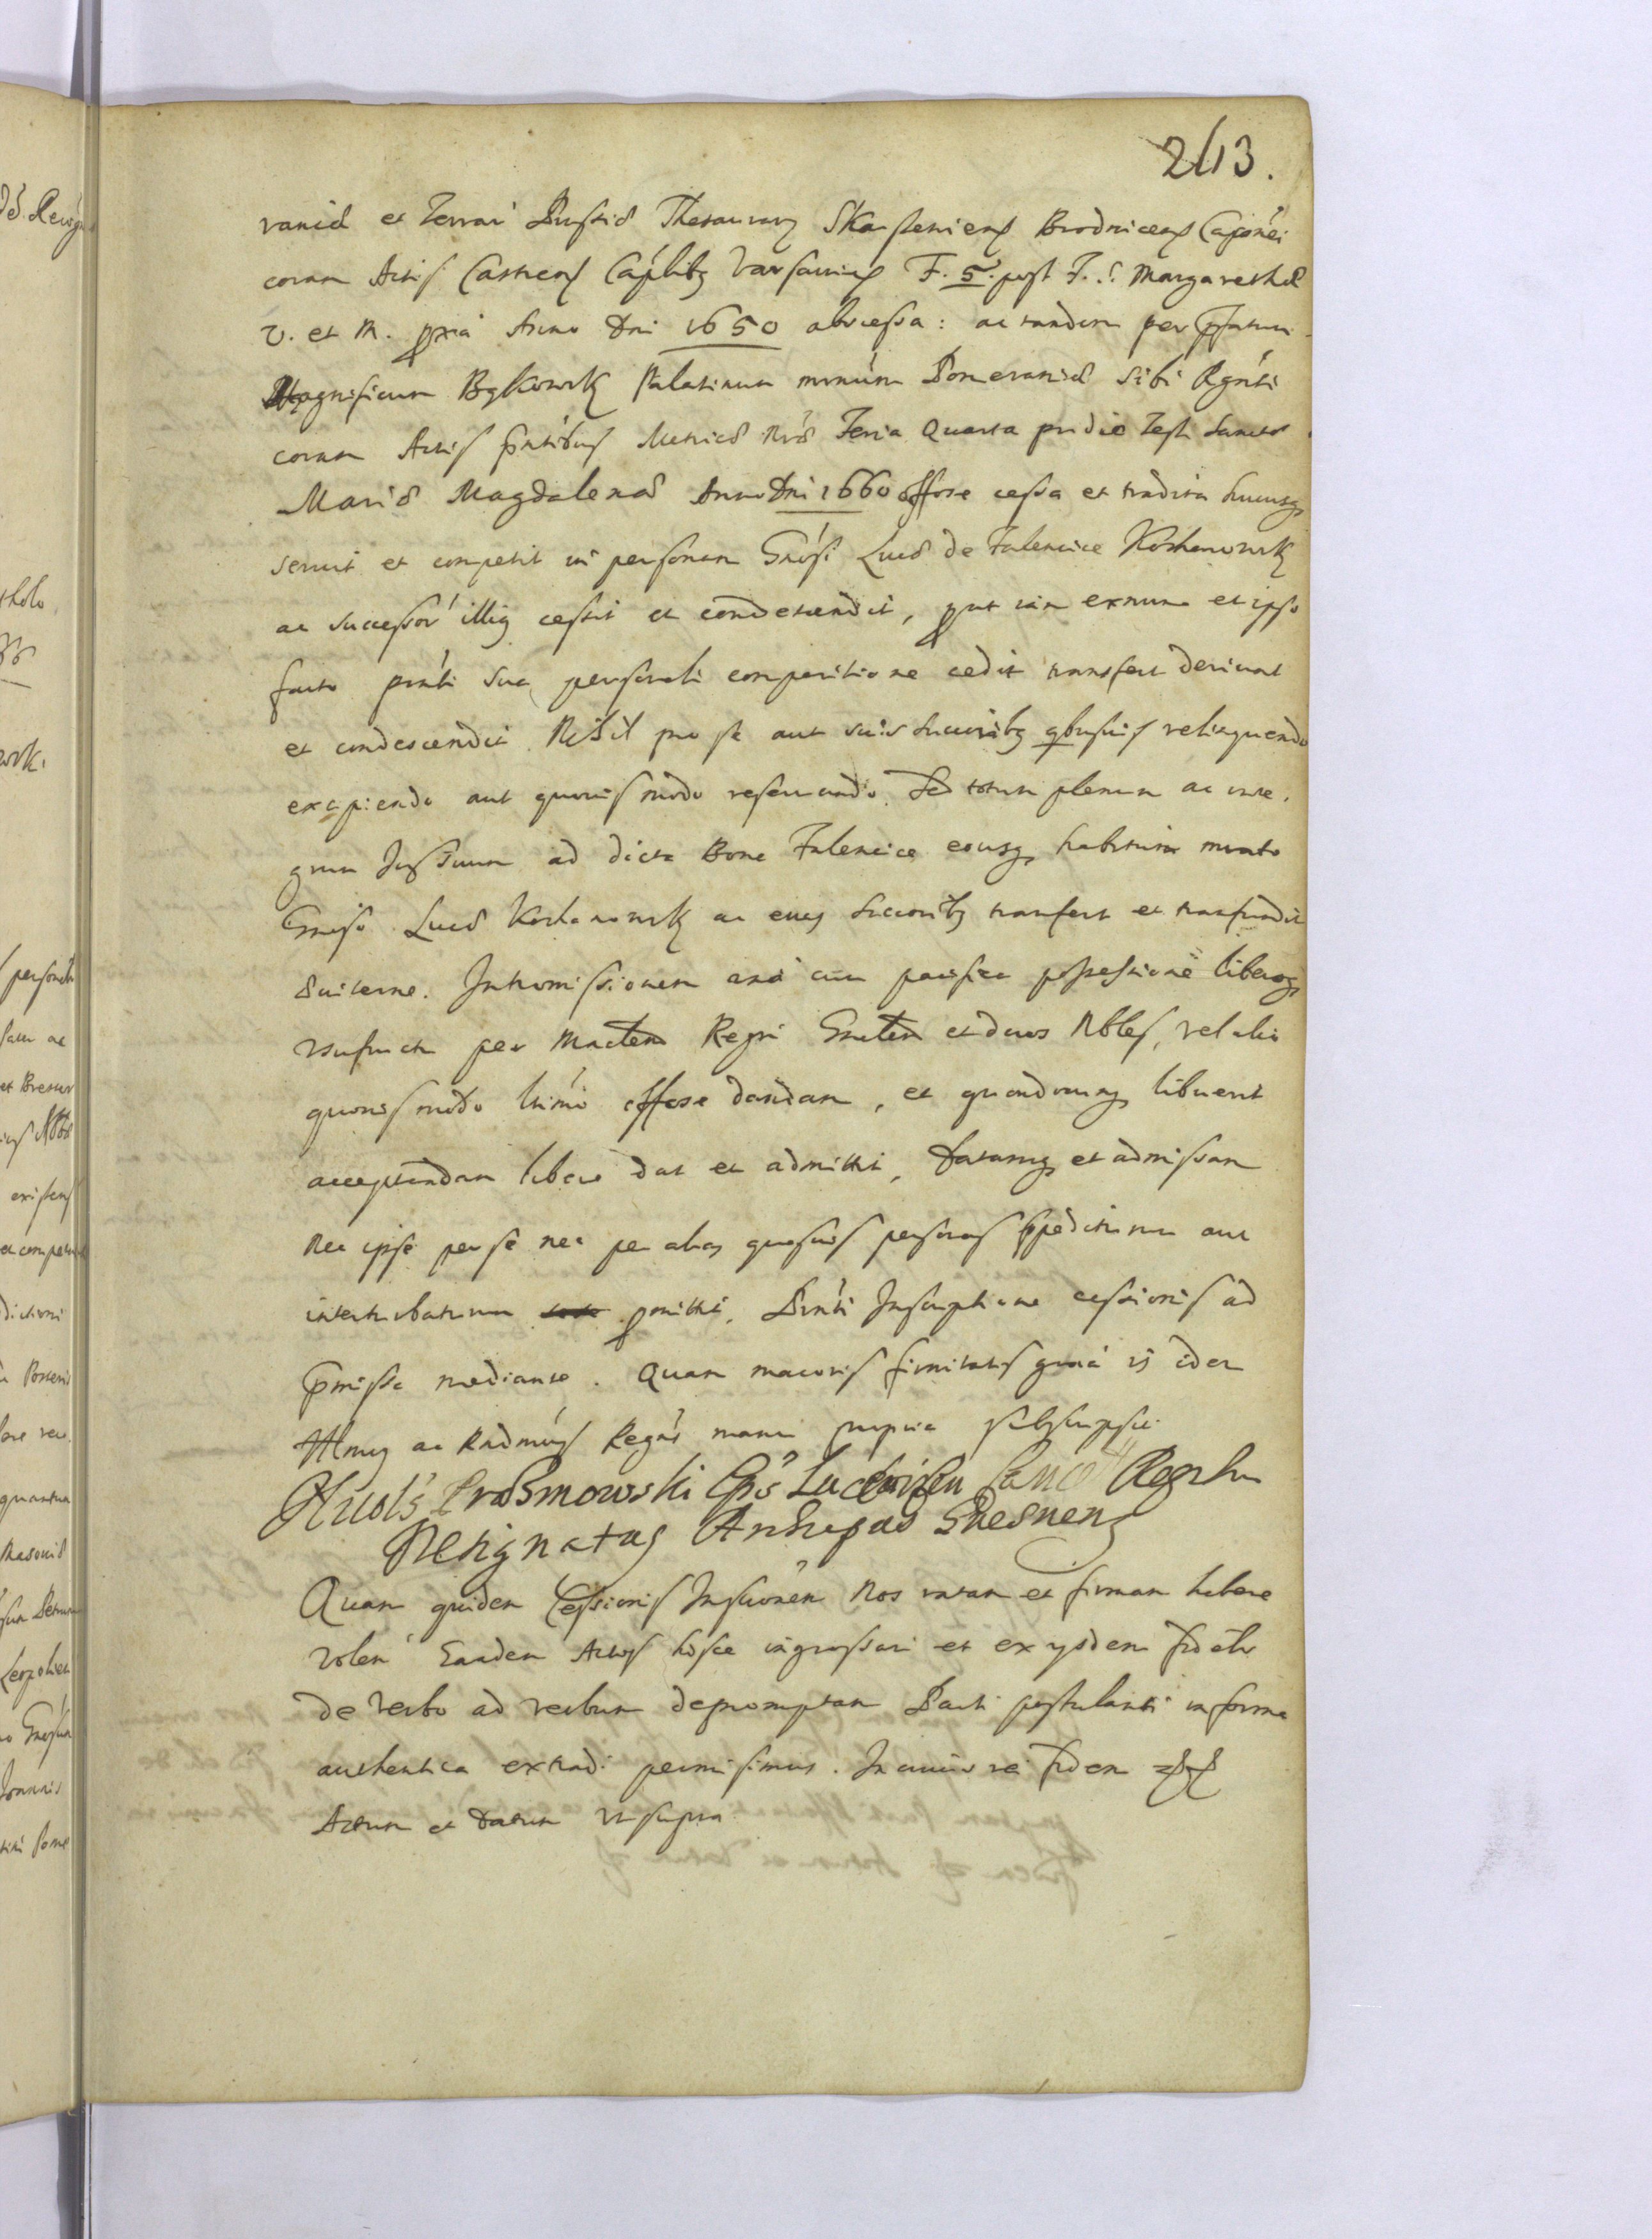 243.
raniæ et Terrar Prussiæ Thesaurarz Skarszeviens Brodnicens Caponei
coram Actis Castrens Caplibz Varsavien F. 5. post F. S. Margarethæ
V. et M. pxia Anno Dni 1650 abrcessa: ac tandem per Pfatum
Magnificum Bąkowsk Palatinum mnium Pomeraniæ sibi Rgnti
coram Actis pntibus Metricæ Rnæ Feria Quarta pridie Festi Sanctæ
Mariæ Magdalenæ Anno Dni 1660 offose cessa et tradita hucusq
servit et competit in personam Gnosi Lucæ de Falencice Kochanowsk
ac successor illiq cessit et condescendit, put iam exnunc et ipso
facto pnti sua personali comparitione cedit transfert derivat
et condescendit. Nihil pro se aut suis succoribz qbusvis relinquendo
excipiendo aut quovismodo reservando. Sed totum plenum ac inte.
grum Jus suum ad dicta Bona Falencice eousq habitum mnato
Gnoso Lucæ Kochanowsk ac eius succoribz transfert et transfundit
Intromissionem cum pacifica possessione liberoq
usufructu per Mnstem Regni Gnalem et duos Nbles, vel alio
quovismodo ltimo offose dandam, et quandocunq libuerit
acceptandam libere dat et admittit, datamq et admissam
nec ipse per se nec per alias quasvis personas ppediturum aut
interturbaturum pmittit. Pnti Inscriptione cessionis ad
pmissa mediante. Quam maioris firmitatis gratia is idem
Illmus ac Rndmus Rgns manu propria subscripsit
Nicols Prasmowski Eps Luceorien Canc Regn
Designatus Archiepus Gnesnens
Quam quidem Cessionis Inscrionem Nos ratam et firmam habere
volen Eandem Actis hisce ingrossari et ex ysdem fidelr
de verbo ad verbum depromptam Parti postulanti in forma
authentica extradi permisimus. In cuius rei fidem
Actum et Datum ut supra